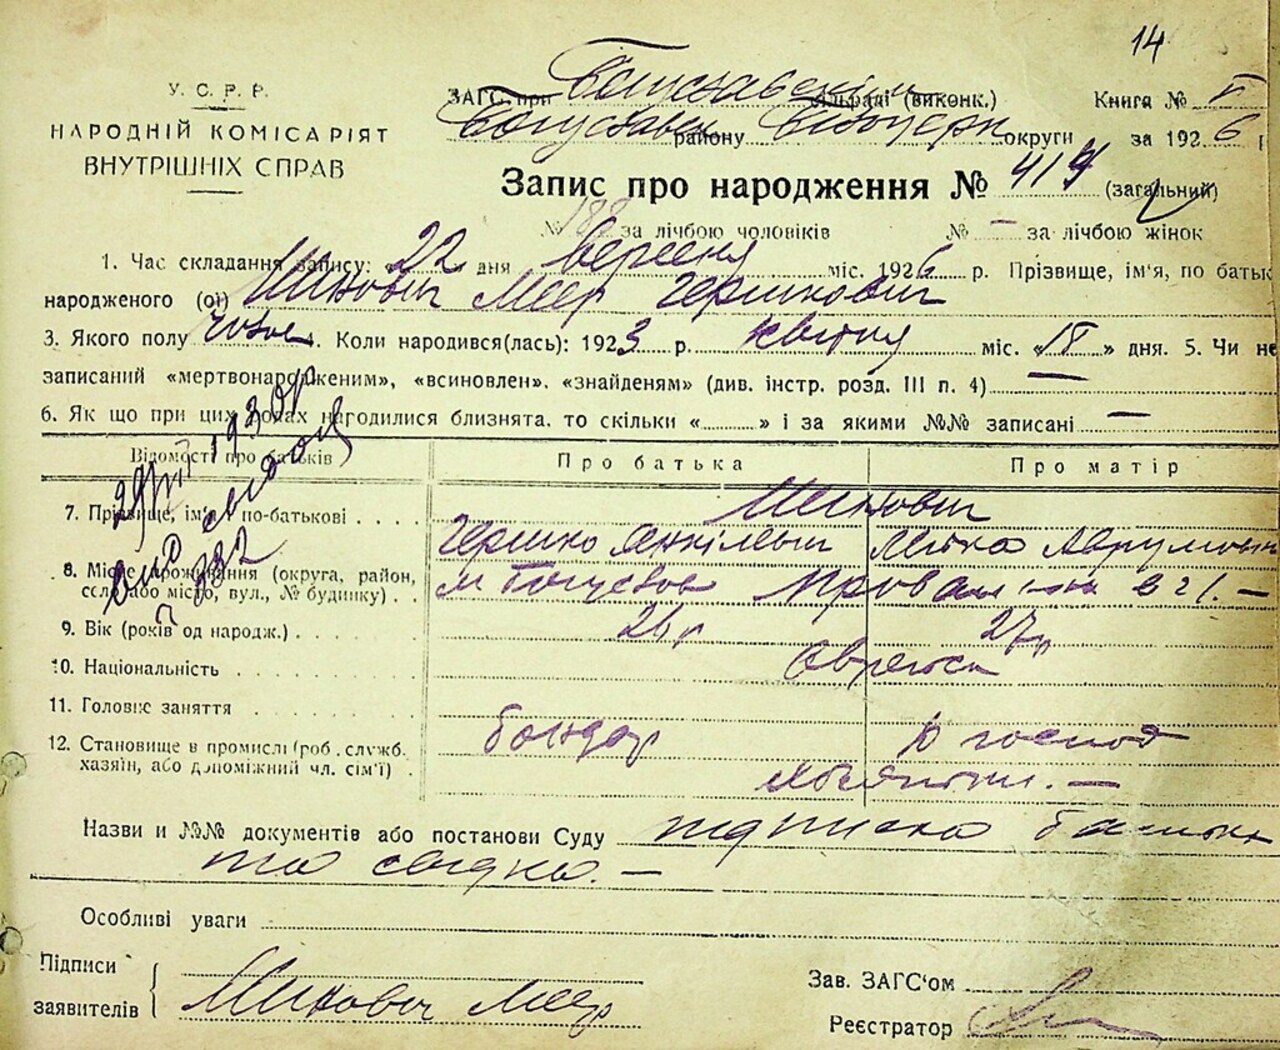 14
У. С. Р. Р.
НАРОДНІЙ КОМІСАРІЯТ
ВНУТРІШНІХ СПРАВ
ЗАГС при Богуславськім (виконк.) Книга №
Богуславськ району округи за 1926
Запис про народження № 419 (загальний)
№ 188 за лічбою чоловіків № — за лічбою жінок
1. Час складання запису: 22 дня вересня міс. 1926 р. Прізвище, ім'я, по батьк
народженого (ої) Шинович Меер Гершкович
3. Якого полу чолов 4. Коли народився(лась): 1923 р. квітня міс. «18» дня. 5. Чи не
записаний «мертвонародженим», «всиновлен», «знайденям» (див. інстр. розд. III п. 4) —
6. Як що при цих родах нагодилися близнята, то скільки «......» і за якими №№ записані —
Відомості про батьків
Про батька
Про матір
7. Прізвище, ім'я і по-батькові
Шинович
Гершко Янкілевич
Аврумовн
8. Місце проживання (округа, район,
село або місто, вул., № будинку)
м Богуслав
в 21. —
9. Вік (років од народж.)
26 р
27 р
10. Національність
Евреська
11. Головне заняття
12. Становище в промислі (роб. служб.
хазяїн, або допоміжний чл. сім'ї)
бондар
господ
Назви и №№ документів або постанови Суду підписка батька
та свідка. —
Особливі уваги
Підписи
заявителів
Шинович Меер
Зав. ЗАГС'ом
Реєстратор